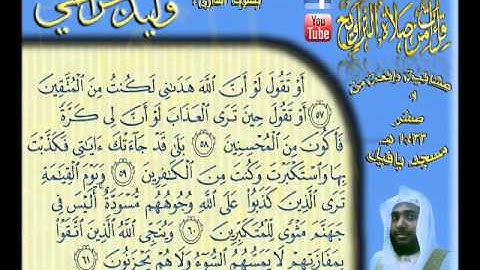 بصوت القارئ:
You Tube
من صلاة التراويح
أَوْ تَقُولَ لَوْ أَنَّ ٱللَّهَ هَدَىٰنِى لَكُنتُ مِنَ ٱلْمُتَّقِينَ
٥٧ أَوْ تَقُولَ حِينَ تَرَى ٱلْعَذَابَ لَوْ أَنَّ لِى كَرَّةً
فَأَكُونَ مِنَ ٱلْمُحْسِنِينَ ٥٨ بَلَىٰ قَدْ جَآءَتْكَ ءَايَٰتِى فَكَذَّبْتَ
بِهَا وَٱسْتَكْبَرْتَ وَكُنتَ مِنَ ٱلْكَٰفِرِينَ ٥٩ وَيَوْمَ ٱلْقِيَٰمَةِ
تَرَى ٱلَّذِينَ كَذَبُوا۟ عَلَى ٱللَّهِ وُجُوهُهُم مُّسْوَدَّةٌ أَلَيْسَ فِى
جَهَنَّمَ مَثْوًى لِّلْمُتَكَبِّرِينَ ٦٠ وَيُنَجِّى ٱللَّهُ ٱلَّذِينَ ٱتَّقَوْا۟
بِمَفَازَتِهِمْ لَا يَمَسُّهُمُ ٱلسُّوٓءُ وَلَا هُمْ يَحْزَنُونَ ٦١
صفر
١٤٣٣ هـ
مسجد